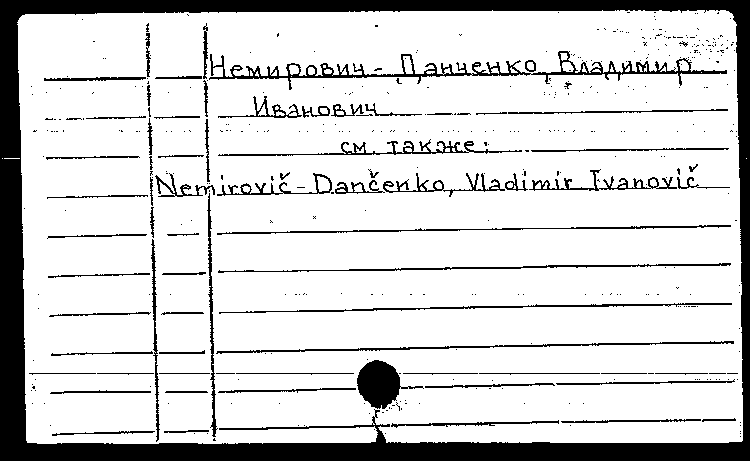 Немирович-Данченко, Владимир
Иванович
см. также:
Nemirovič-Dančenko, Vladimir Ivanovič